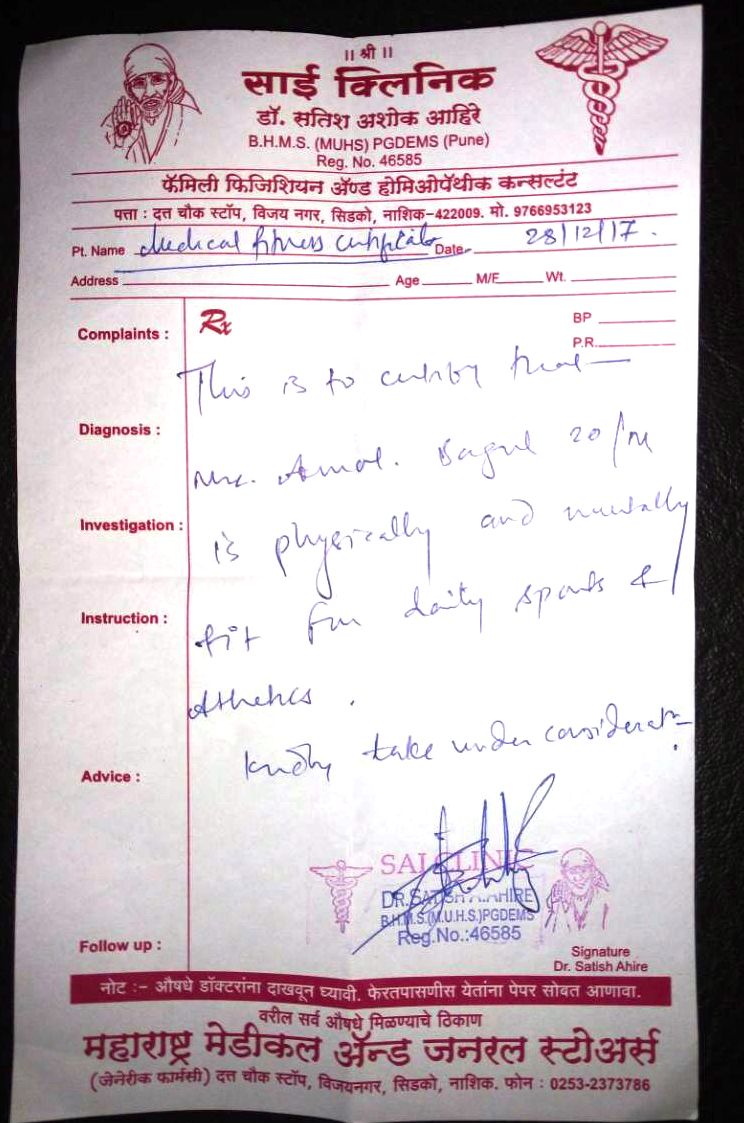 ॥ श्री ॥
साई क्लिनिक
डॉ. सतिश अशोक आहिरे
B.H.M.S. (MUHS) PGDEMS (Pune)
Reg. No. 46585
फॅमिली फिजिशियन ॲण्ड होमिओपॅथीक कन्सल्टंट
पत्ता : दत्त चौक स्टॉप, विजय नगर, सिडको, नाशिक-422009. मो. 9766953123
Pt. Name Medical fitness certificate Date 28/12/17.
Address Age M/F Wt.
Complaints : Rx BP
P.R.
This is to certify that
Diagnosis :
Mr. Amol. Bagul 20/M
Investigation :
is physically and mentally
Instruction :
fit for daily sports &
Athletics.
Kindly take under considerat
Advice :
SAI CLINIC
DR.SATISH A.AHIRE
B.H.M.S.(M.U.H.S.)PGDEMS
Reg.No.:46585
Follow up :
Signature
Dr. Satish Ahire
नोट :- औषधे डॉक्टरांना दाखवून घ्यावी. फेरतपासणीस येतांना पेपर सोबत आणावा.
वरील सर्व औषधे मिळण्याचे ठिकाण
महाराष्ट्र मेडीकल ॲन्ड जनरल स्टोअर्स
(जेनेरीक फार्मसी) दत्त चौक स्टॉप, विजयनगर, सिडको, नाशिक. फोन : 0253-2373786